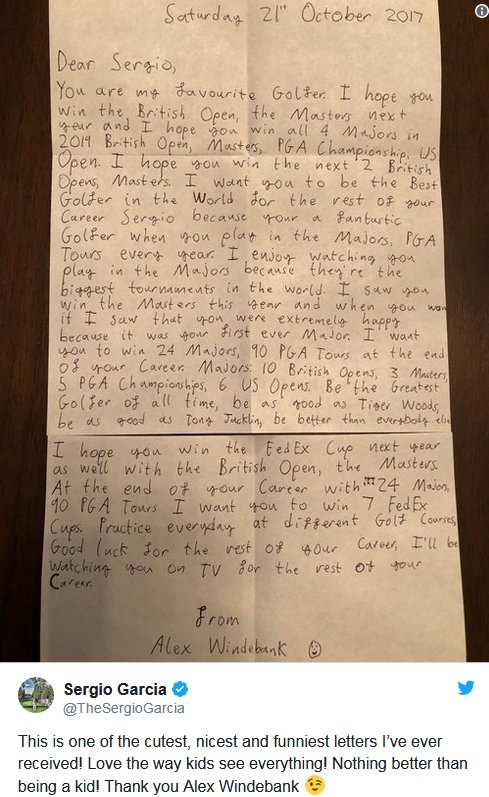 Saturday 21st October 2017
Dear Sergio,
You are my favourite Golfer. I hope you
win the British Open, the Masters next
year and I hope you win all 4 Majors in
2019 British Open, Masters, PGA Championship, US
Open. I hope you win the next 2 British
Opens, Masters. I want you to be the Best
Golfer in the World for the rest of your
Career Sergio because your a fantastic
Golfer when you play in the Majors, PGA
Tours every year. I enjoy watching you
play in the Majors because they're the
biggest tournaments in the world. I saw you
win the Masters this year and when you won
it I saw that you were extremely happy
because it was your first ever Major. I want
you to win 24 Majors, 90 PGA Tours at the end
of your Career. Majors: 10 British Opens, 3 Masters,
5 PGA Championships, 6 US Opens. Be the Greatest
Golfer of all time, be as good as Tiger Woods,
be as good as Tony Jacklin, be better than everybody else
I hope you win the FedEx Cup next year
as well with the British Open, the Masters.
At the end of your Career with 24 Majors,
90 PGA Tours I want you to win 7 FedEx
Cups. Practice everyday at different Golf Courses,
Good luck for the rest of your Career, I'll be
watching you on TV for the rest of your
Career.
from
Alex Windebank ☺
Sergio Garcia
@TheSergioGarcia
This is one of the cutest, nicest and funniest letters I've ever
received! Love the way kids see everything! Nothing better than
being a kid! Thank you Alex Windebank 😉